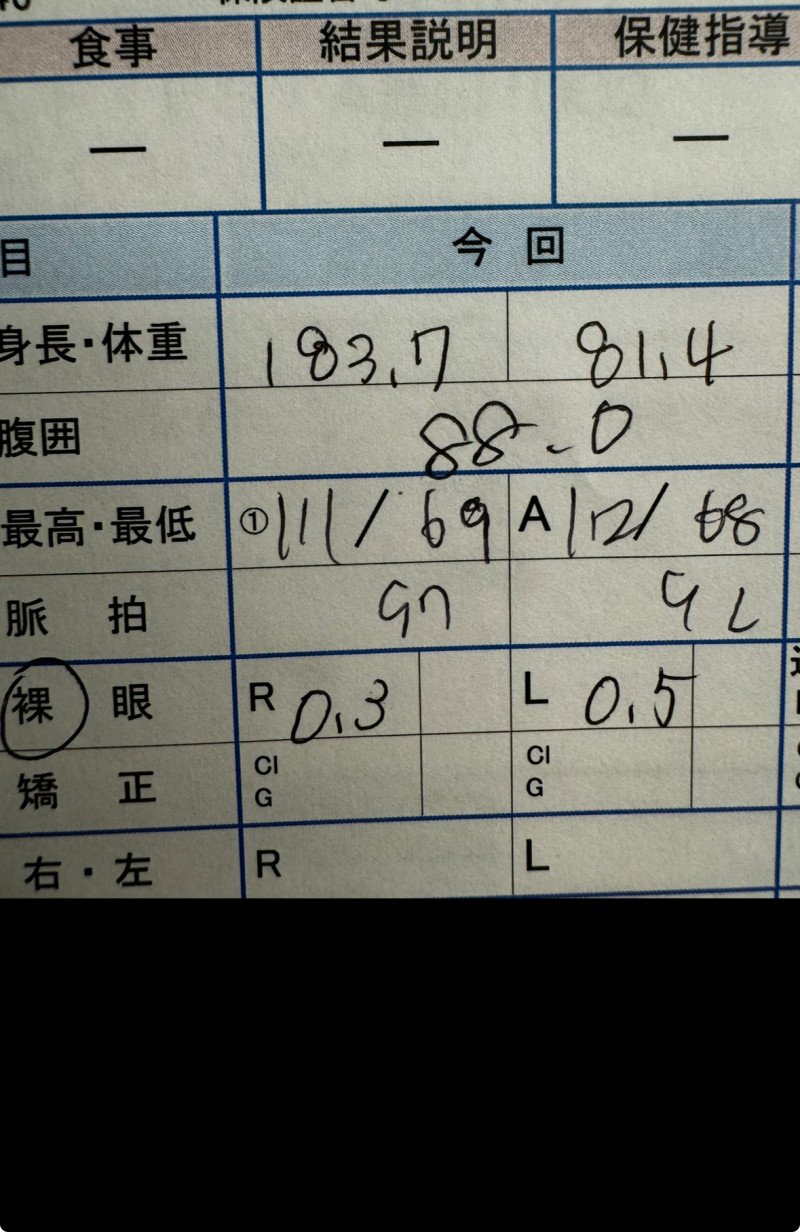 食事 結果説明 保健指導
— — —
目 今回
身長・体重 183.7 81.4
腹囲 88.0
最高・最低 ①111/69 A 112/68
脈拍
裸眼 R 0.3 L 0.5
矯正 Cl G Cl G
右・左 R L